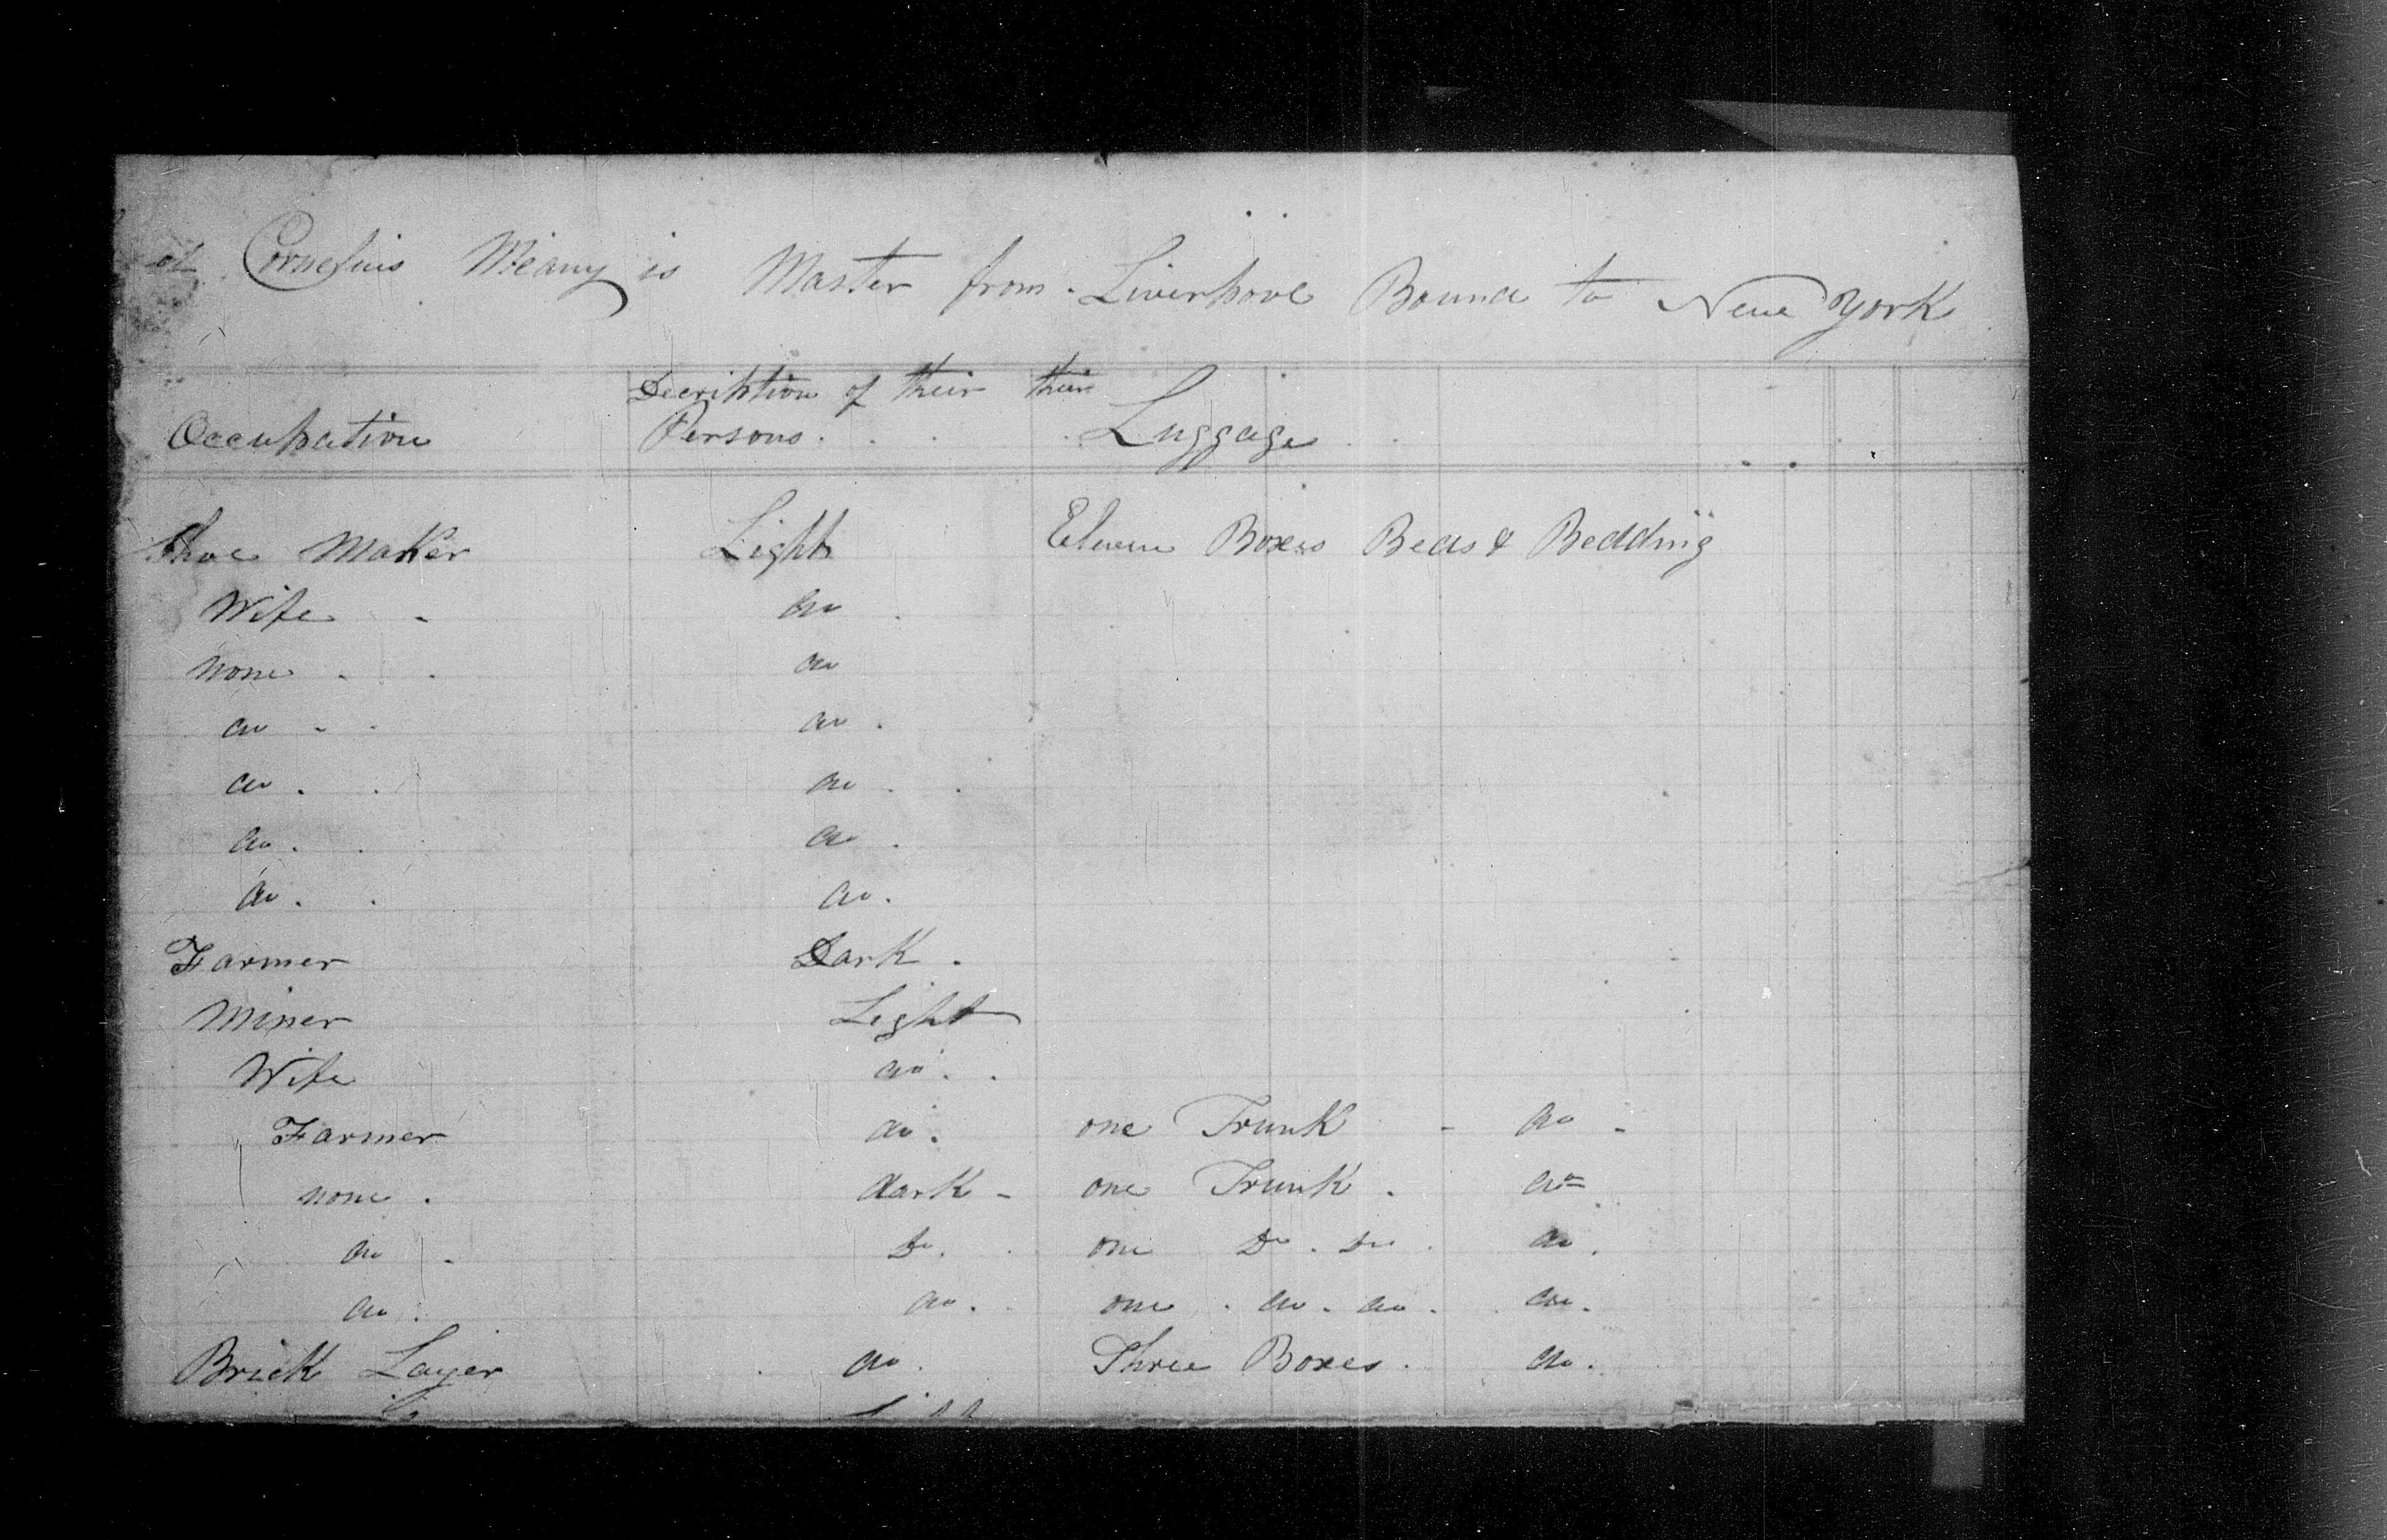 Cornelius Meany is Master from Liverpool Bound to New York
Decription of their their
Occupation Persons. Luggage
Shoe Maker Light Eleven Boxes Beds & Bedding
Wife do
none do
do do
do do
do do
do do
Farmer Dark
Miner Light
Wife do
Farmer do one Trunk do
none dark one Trunk do
do Do one Do Do do
do do one do do do
Brick Layer do Three Boxes do